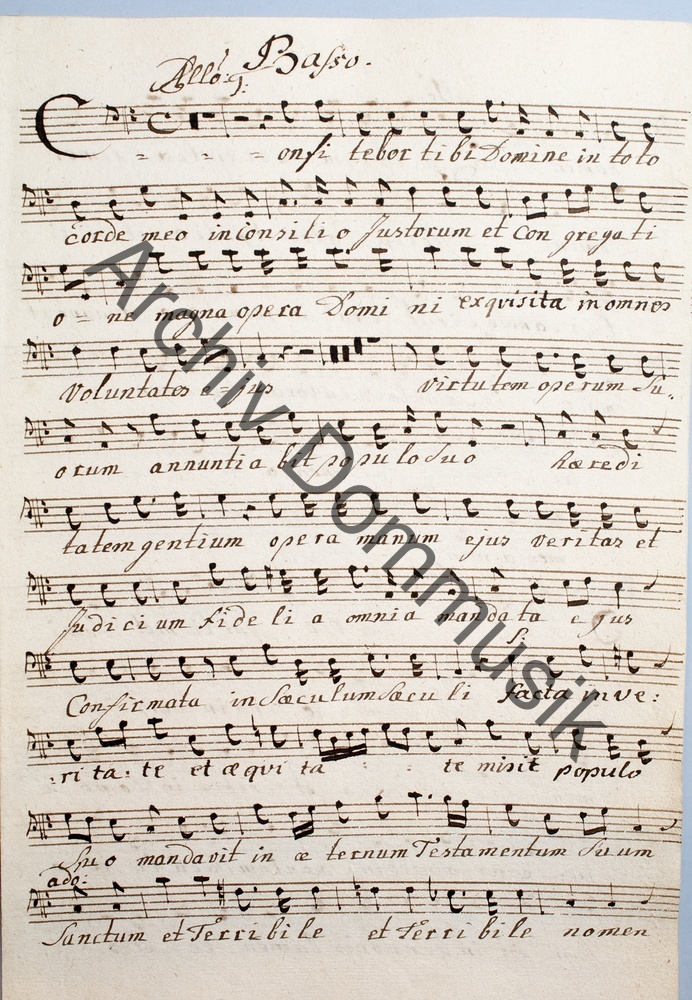 Basso.
Allo:
C - - - onfi tebor tibi Domine in toto
corde meo in Consili o Justorum et Con grega ti
o - ne magna opera Domi ni exquisita in omnes
Voluntates e - jus virtutem operum Su..
orum annuntia bit populo Suo hæredi
tatem gentium opera manum ejus veritas et
Judicium fide li a omnia mandata ejus
Confirmata in Sæculum Sæcu li facta in ve:
:rita: te et æqui ta te misit populo
Suo mandavit in æ ternum Testamentum Suum
ado:
Sanctum et Terribile et Terri bile nomen
Archiv Dommusik